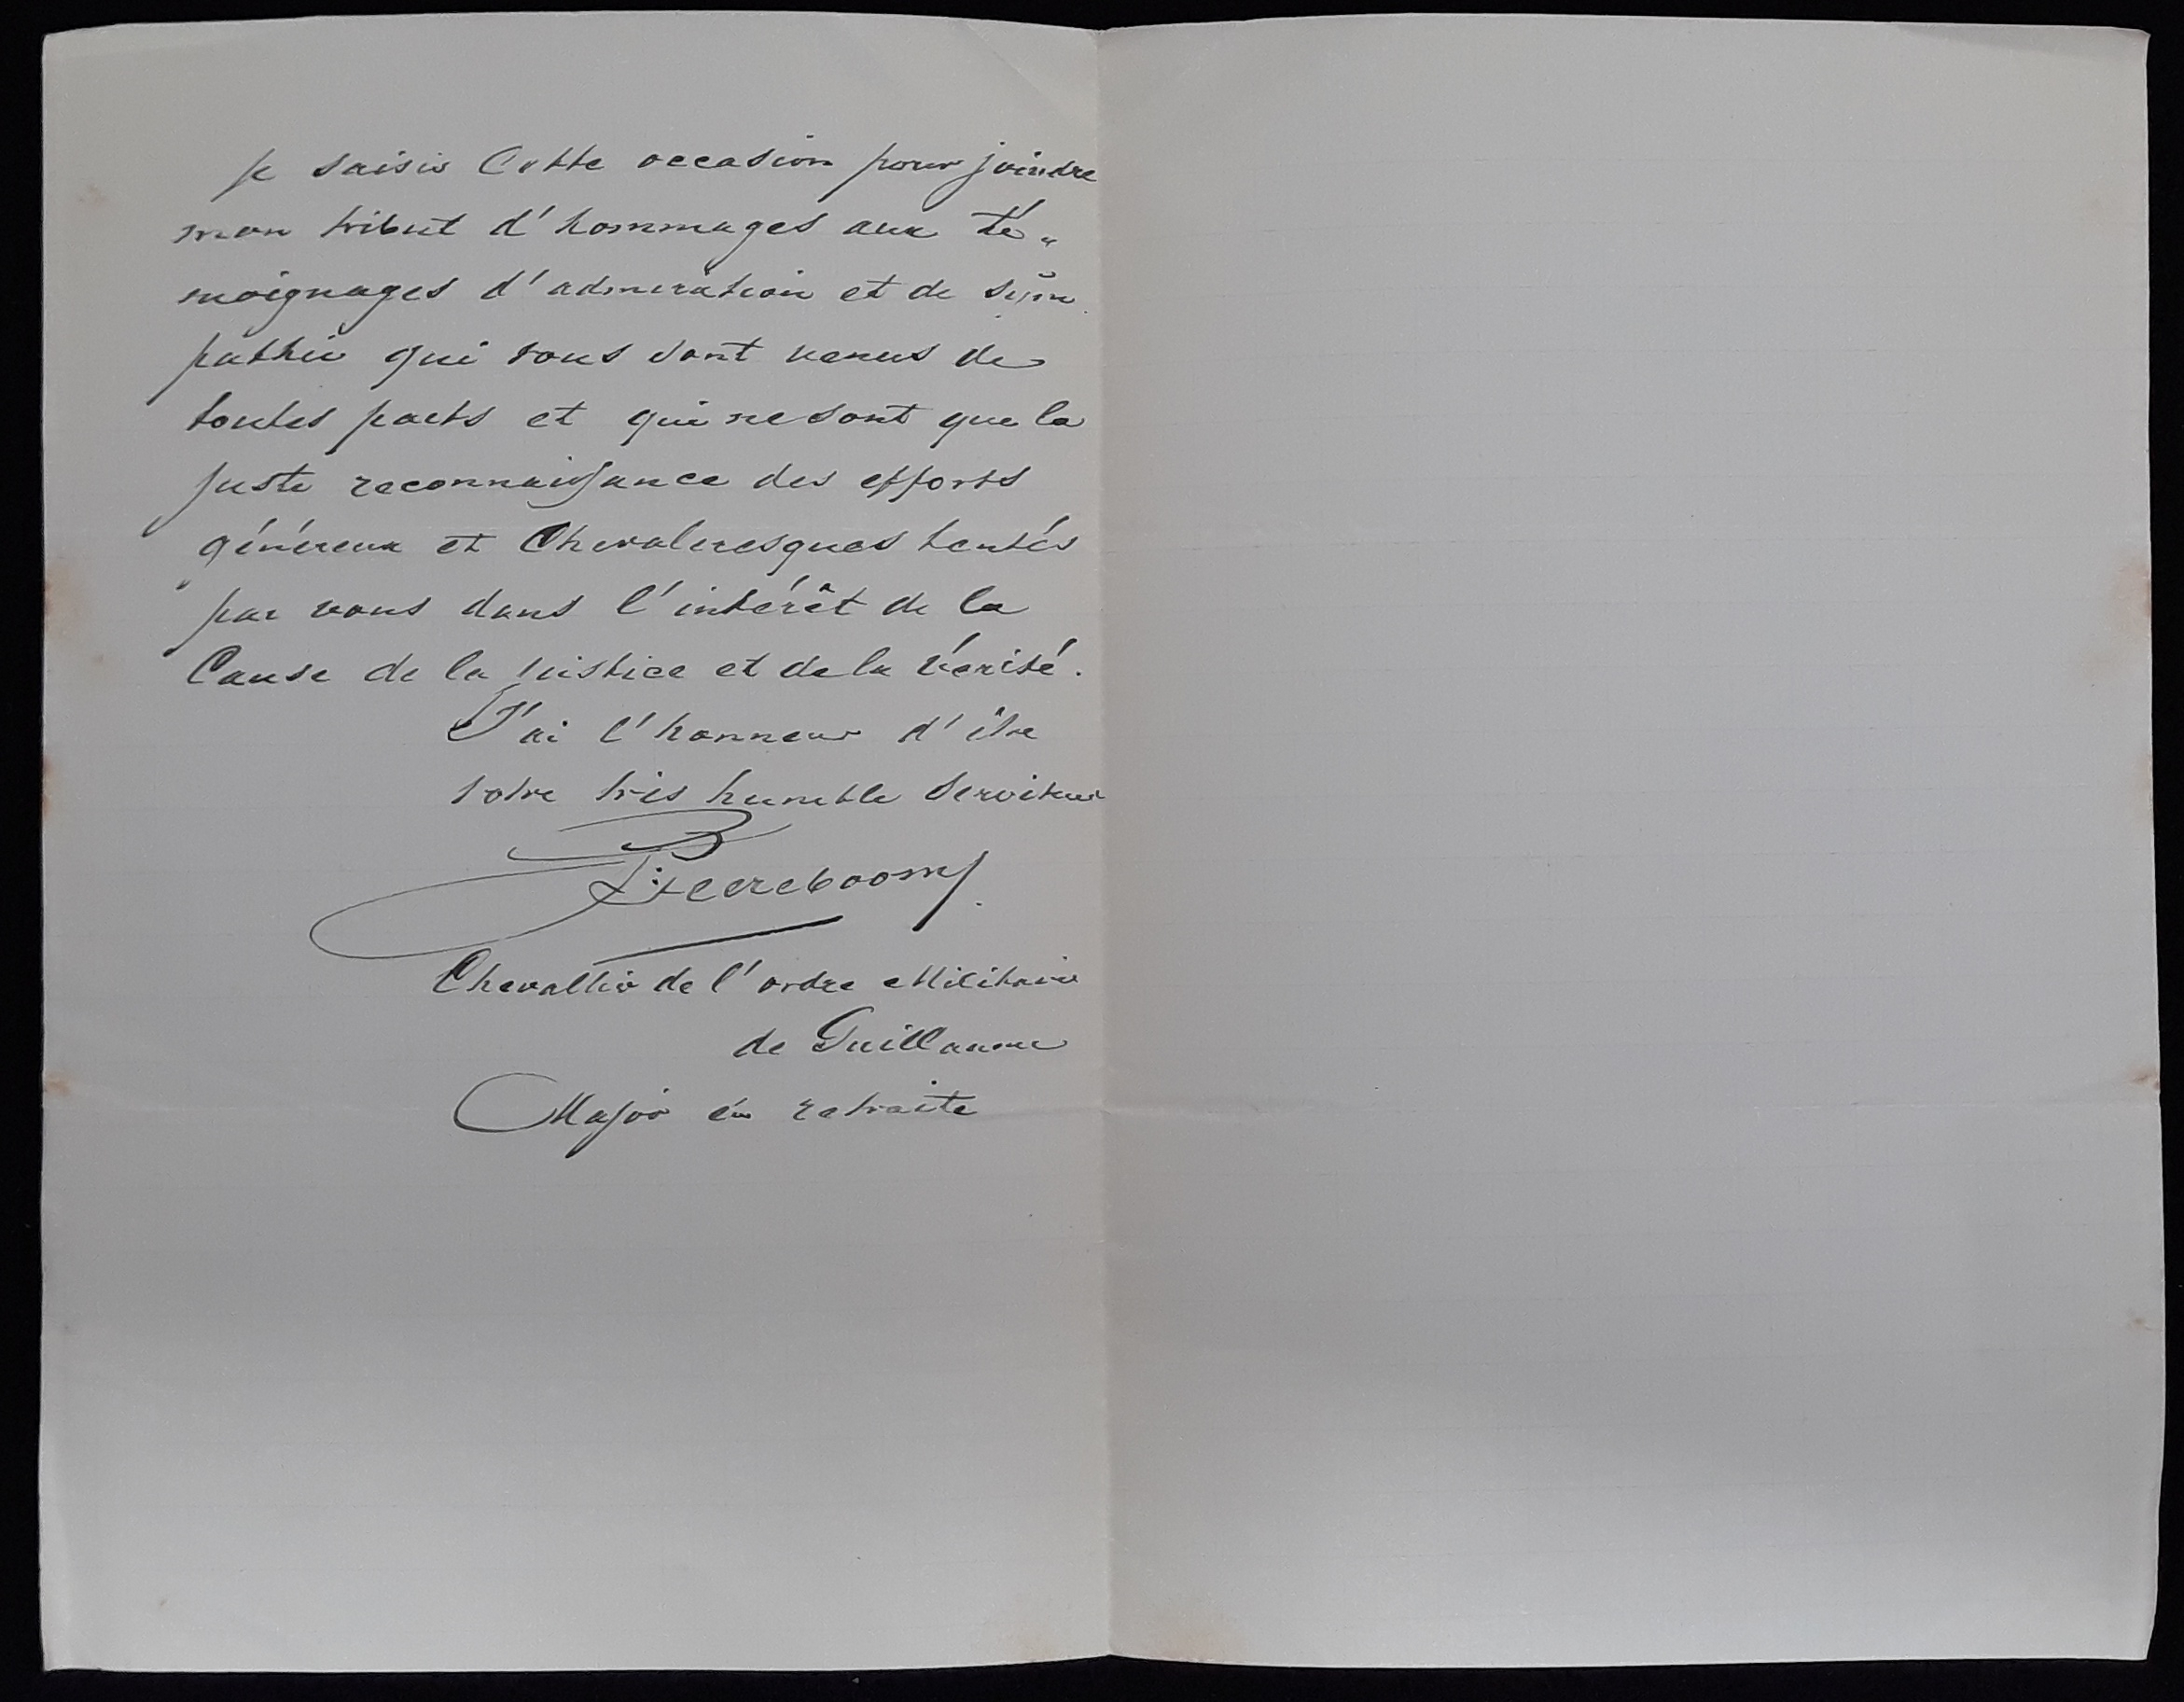 je saisis Cette occasion pour joindre
mon tribut d'hommages aux té„
moignages d'admiration et de sym
pathie qui vous sont venus de
toutes parts et qui ne sont que la
juste reconnaissance des efforts
généreux et Chevaleresques tentés
par vous dans l'intérêt de la
Cause de la justice et de la vérité.
J'ai l'honneur d'être
votre très humble serviteur
Peereboom
Chevallier de l'ordre Militaire
de Guillaume
Major en retraite